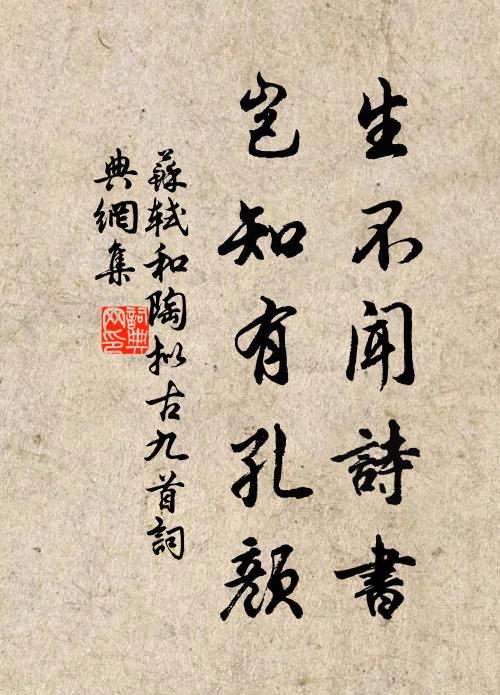 生不聞詩書
豈知有孔顏
蘇軾和陶擬古九首詞
典網集
詞典
网印